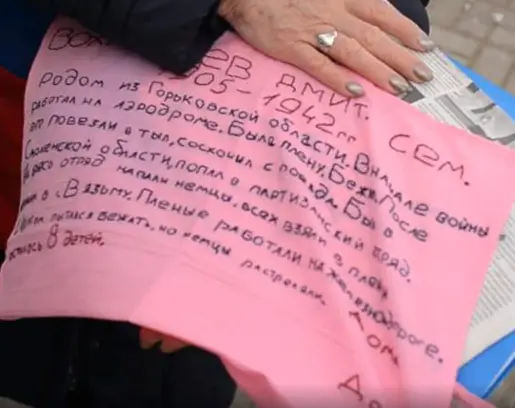 ЕВ ДМИТ. СЕМ.
905-1942гг
родом из Горьковской области. Вначале войны
работал на аэродроме. Был в плену. Бежал. После
повезли в тыл, соскочил с поезда. Был в
Смоленской области, попал в партизанский отряд.
весь отряд напали немцы, всех взяли в плен
Вязьму. Пленые работали на железнодороге.
пытался бежать, но немцы растреляли. Дома
осталось 8 детей.